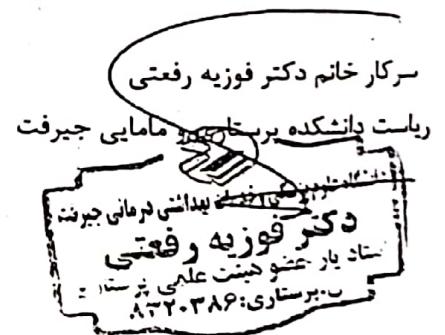 سرکار خانم دکتر فوزیه رفعتی
ریاست دانشکده پرستاری و مامایی جیرفت
بهداشتی درمانی جیرفت
دکتر فوزیه رفعتی
استاد یار عضو هیئت علمی پرستاری
ن.پرستاری: ۸۳۲۰۳۸۶